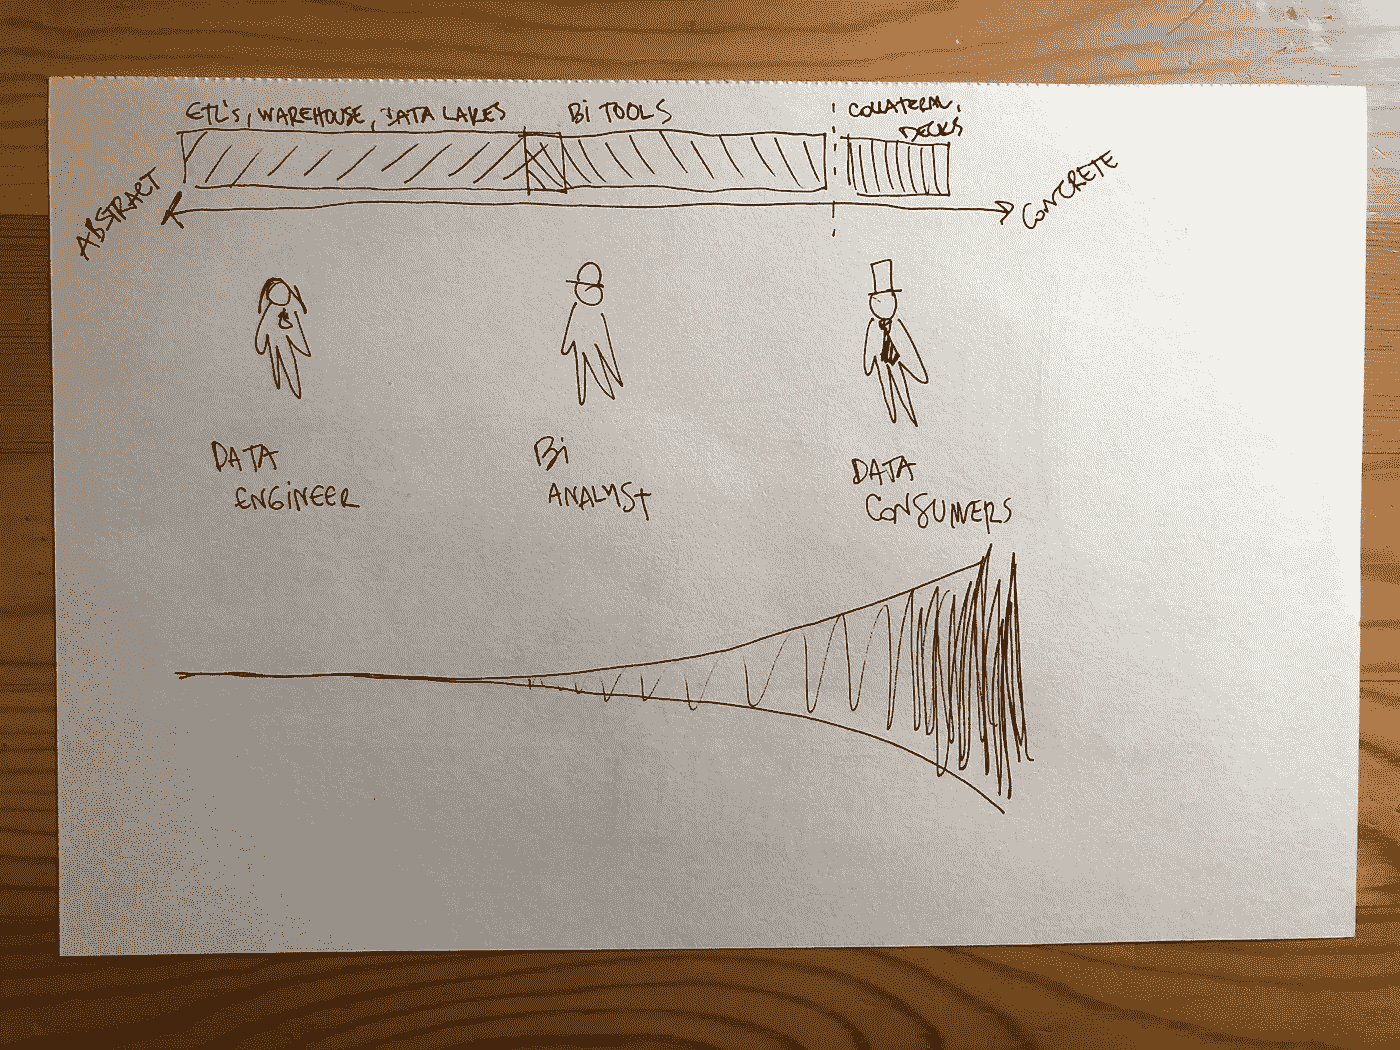 ETL's, WAREHOUSE, DATA LAKES
Bi TOOLS
COLLATERAL,
DECKS
ABSTRACT
CONCRETE
DATA
ENGiNEER
Bi
ANALYST
DATA
CONSUMERS